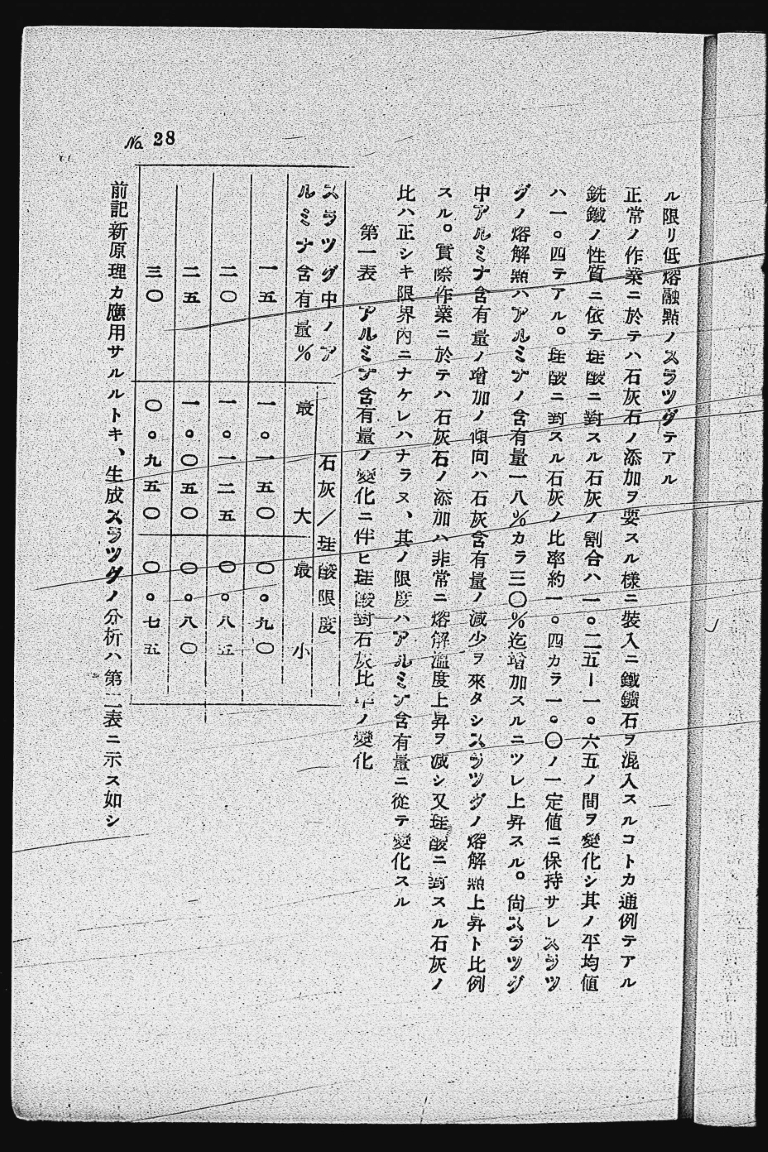 ル限リ低熔融點ノスラツグテアル
正常ノ作業ニ於テハ石灰石ノ添加ヲ要スル樣ニ裝入ニ鐵鑛石ヲ混入スルコトカ通例テアル
銑鐵ノ性質ニ依テ珪酸ニ對スル石灰ノ割合ハ一。二五ー一。六五ノ間ヲ變化シ其ノ平均値
ハ一。四テアル。珪酸ニ對スル石灰ノ比率約一。四カラ一。〇ノ一定値ニ保持サレスラツ
グノ熔解點ハアルミナノ含有量一八%カラ三〇%迄增加スルニツレ上昇スル。尙スラツグ
中アルミナ含有量ノ增加ノ傾向ハ石灰含有量ノ減少ヲ來タシスラツグノ熔解點上昇ト比例
スル。實際作業ニ於テハ石灰石ノ添加ハ非常ニ熔解溫度上昇ヲ減シ又珪酸ニ對スル石灰ノ
比ハ正シキ限界內ニナケレハナラヌ、其ノ限度ハアルミナ含有量ニ從テ變化スル
第一表 アルミナ含有量ノ變化ニ伴ヒ珪酸對石灰比率ノ變化
スラツグ中ノア 石灰/珪酸限度
ルミナ含有量% 最大 最小
一五 一。一五〇 〇。九〇
二〇 一。一二五 〇。八五
二五 一。〇五〇 〇。八〇
三〇 〇。九五〇 〇。七五
前記新原理カ應用サルルトキ、生成スラツグノ分析ハ第二表ニ示ス如シ
No. 28